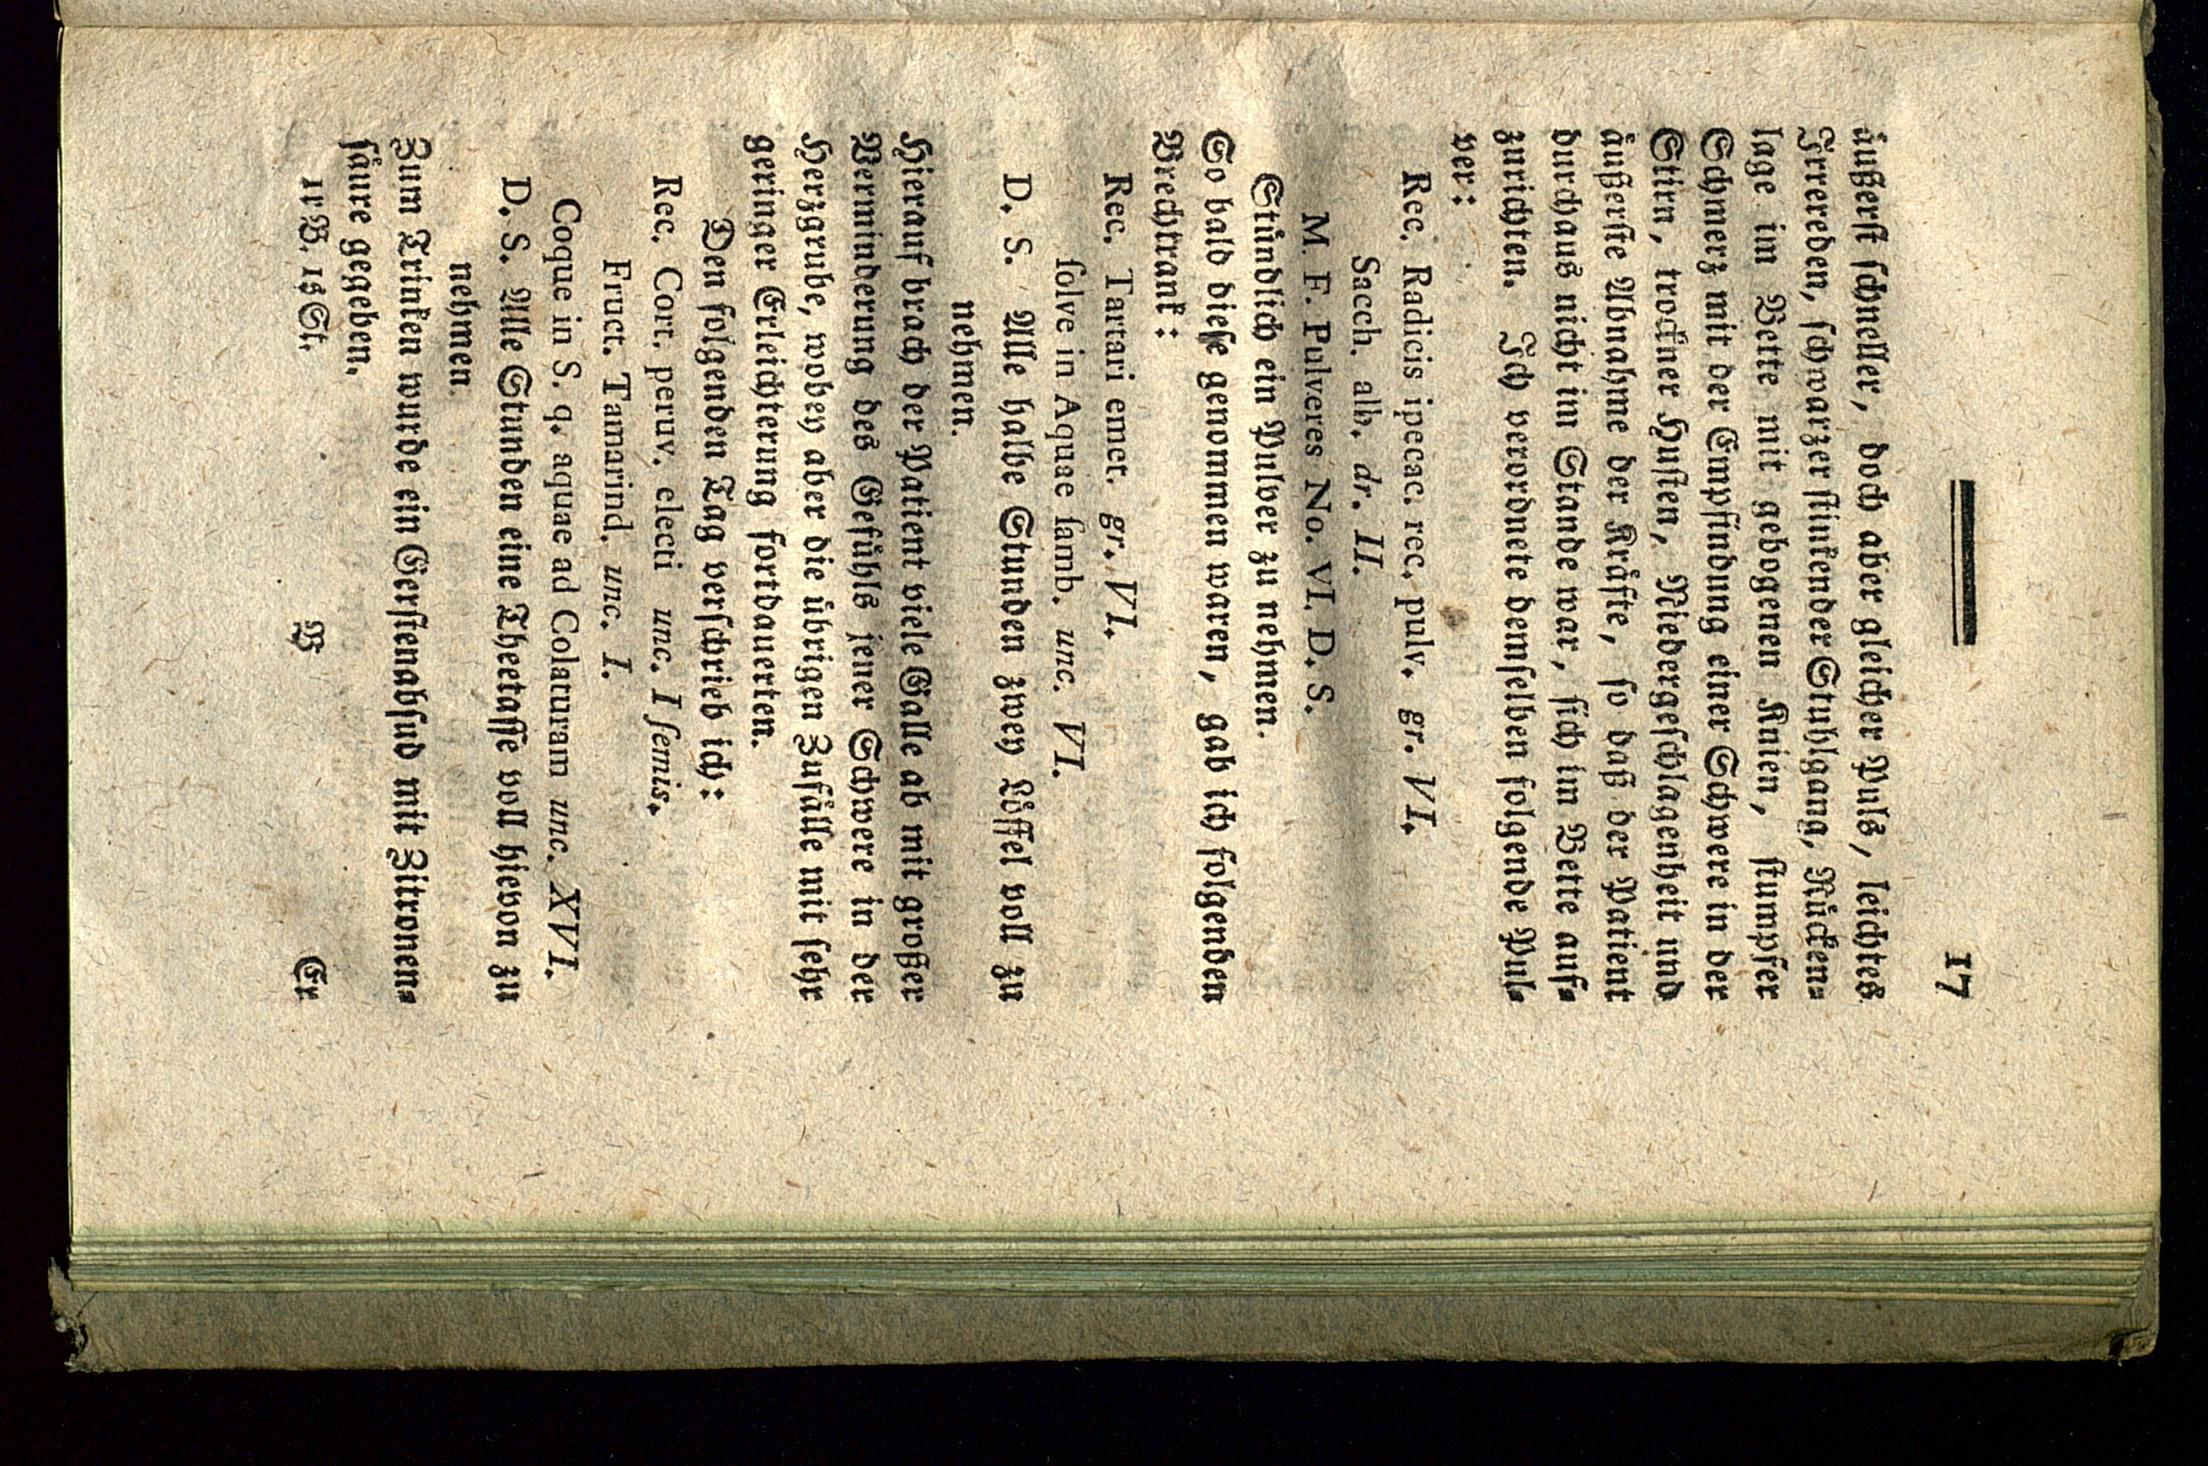 17
äußerst schneller, doch aber gleicher Puls, leichtes
Irrereden, schwarzer stinkender Stuhlgang, Rücken⸗
lage im Bette mit gebogenen Knien, stumpfer
Schmerz mit der Empfindung einer Schwere in der
Stirn, trockner Husten, Niedergeschlagenheit und
äußerste Abnahme der Kräfte, so daß der Patient
durchaus nicht im Stande war, sich im Bette auf⸗
zurichten. Ich verordnete demselben folgende Pul⸗
ver:
Rec. Radicis ipecac. rec. pulv. gr. VI.
Sacch. alb. dr. II.
M. F. Pulveres No. VI. D. S.
Stündlich ein Pulver zu nehmen.
So bald diese genommen waren, gab ich folgenden
Brechtrank:
Rec. Tartari emet. gr. VI.
ſolve in Aquae ſamb. unc. VI.
D. S. Alle halbe Stunden zwey Löffel voll zu
nehmen.
Hierauf brach der Patient viele Galle ab mit großer
Verminderung des Gefühls jener Schwere in der
Herzgrube, wobey aber die übrigen Zufälle mit sehr
geringer Erleichterung fortdauerten.
Den folgenden Tag verschrieb ich:
Rec. Cort. peruv. electi unc. I ſemis.
Fruct. Tamarind. unc. I.
Coque in S. q. aquae ad Colaturam unc. XVI.
D. S. Alle Stunden eine Theetasse voll hievon zu
nehmen.
Zum Trinken wurde ein Gerstenabsud mit Zitronen⸗
säure gegeben.
1r B. 1s St. B Er